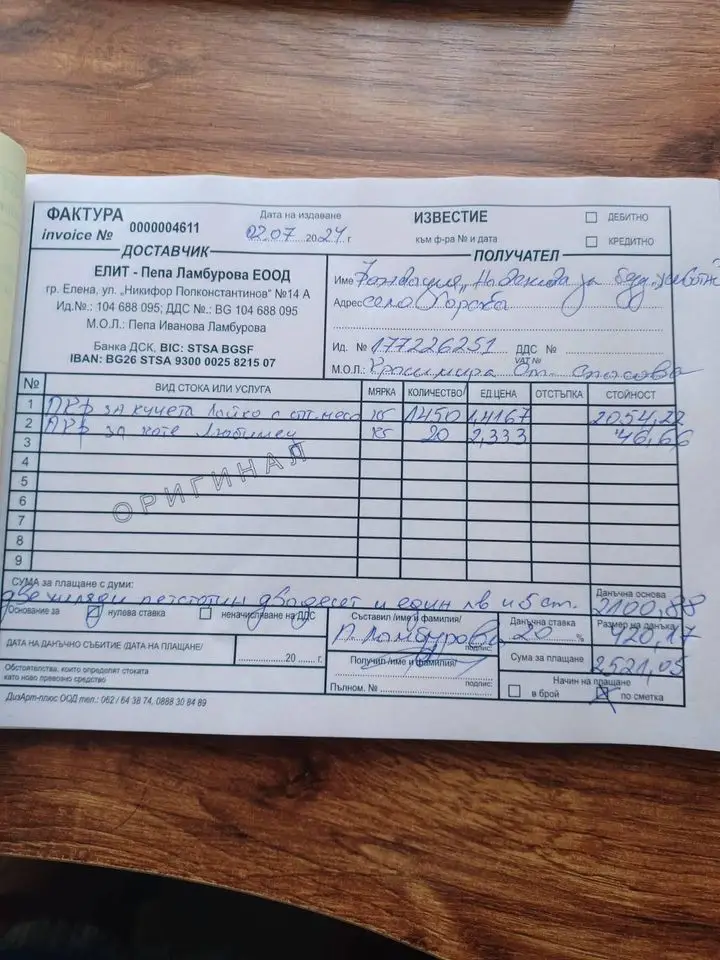 ФАКТУРА 0000004611
invoice №
Дата на издаване
02.07 2024 г.
ИЗВЕСТИЕ
към ф-ра № и дата
ДЕБИТНО
КРЕДИТНО
ДОСТАВЧИК
ЕЛИТ - Пепа Ламбурова ЕООД
гр. Елена, ул. „Никифор Попконстантинов" №14 А
Ид.№.: 104 688 095; ДДС №.: BG 104 688 095
М.О.Л.: Пепа Иванова Ламбурова
Банка ДСК, BIC: STSA BGSF
IBAN: BG26 STSA 9300 0025 8215 07
ПОЛУЧАТЕЛ
Име Фондация „Надежда за безд. животни
Адрес село Горско
Ид. № 177226251 ДДС №
VAT №
М.О.Л.: Красимира От. Спасова
№ ВИД СТОКА ИЛИ УСЛУГА МЯРКА КОЛИЧЕСТВО ЕД.ЦЕНА ОТСТЪПКА СТОЙНОСТ
1 за кучета Лайко с опт. месо кг 1450 1,4167 2054,22
2 за коте Любимец кг 20 2,333 46,66
3
4
5
6
7
8
9
ОРИГИНАЛ
СУМА за плащане с думи:
две хиляди петстотин двадесет и един лв и 5 ст.
Данъчна основа
2100,88
Основание за нулева ставка неначисляване на ДДС
Съставил /име и фамилия/
П. Ламбурова
подпис:
Данъчна ставка
20 %
Размер на данъка
420,17
ДАТА НА ДАНЪЧНО СЪБИТИЕ /ДАТА НА ПЛАЩАНЕ/
20 г.
Получил /име и фамилия/
подпис:
Сума за плащане 2521,05
Обстоятелства, които определят стоката
като ново превозно средство
Пълном. №
Начин на плащане
в брой по сметка
ДизАрт-плюс ООД тел.: 062 / 64 38 74, 0888 30 84 89